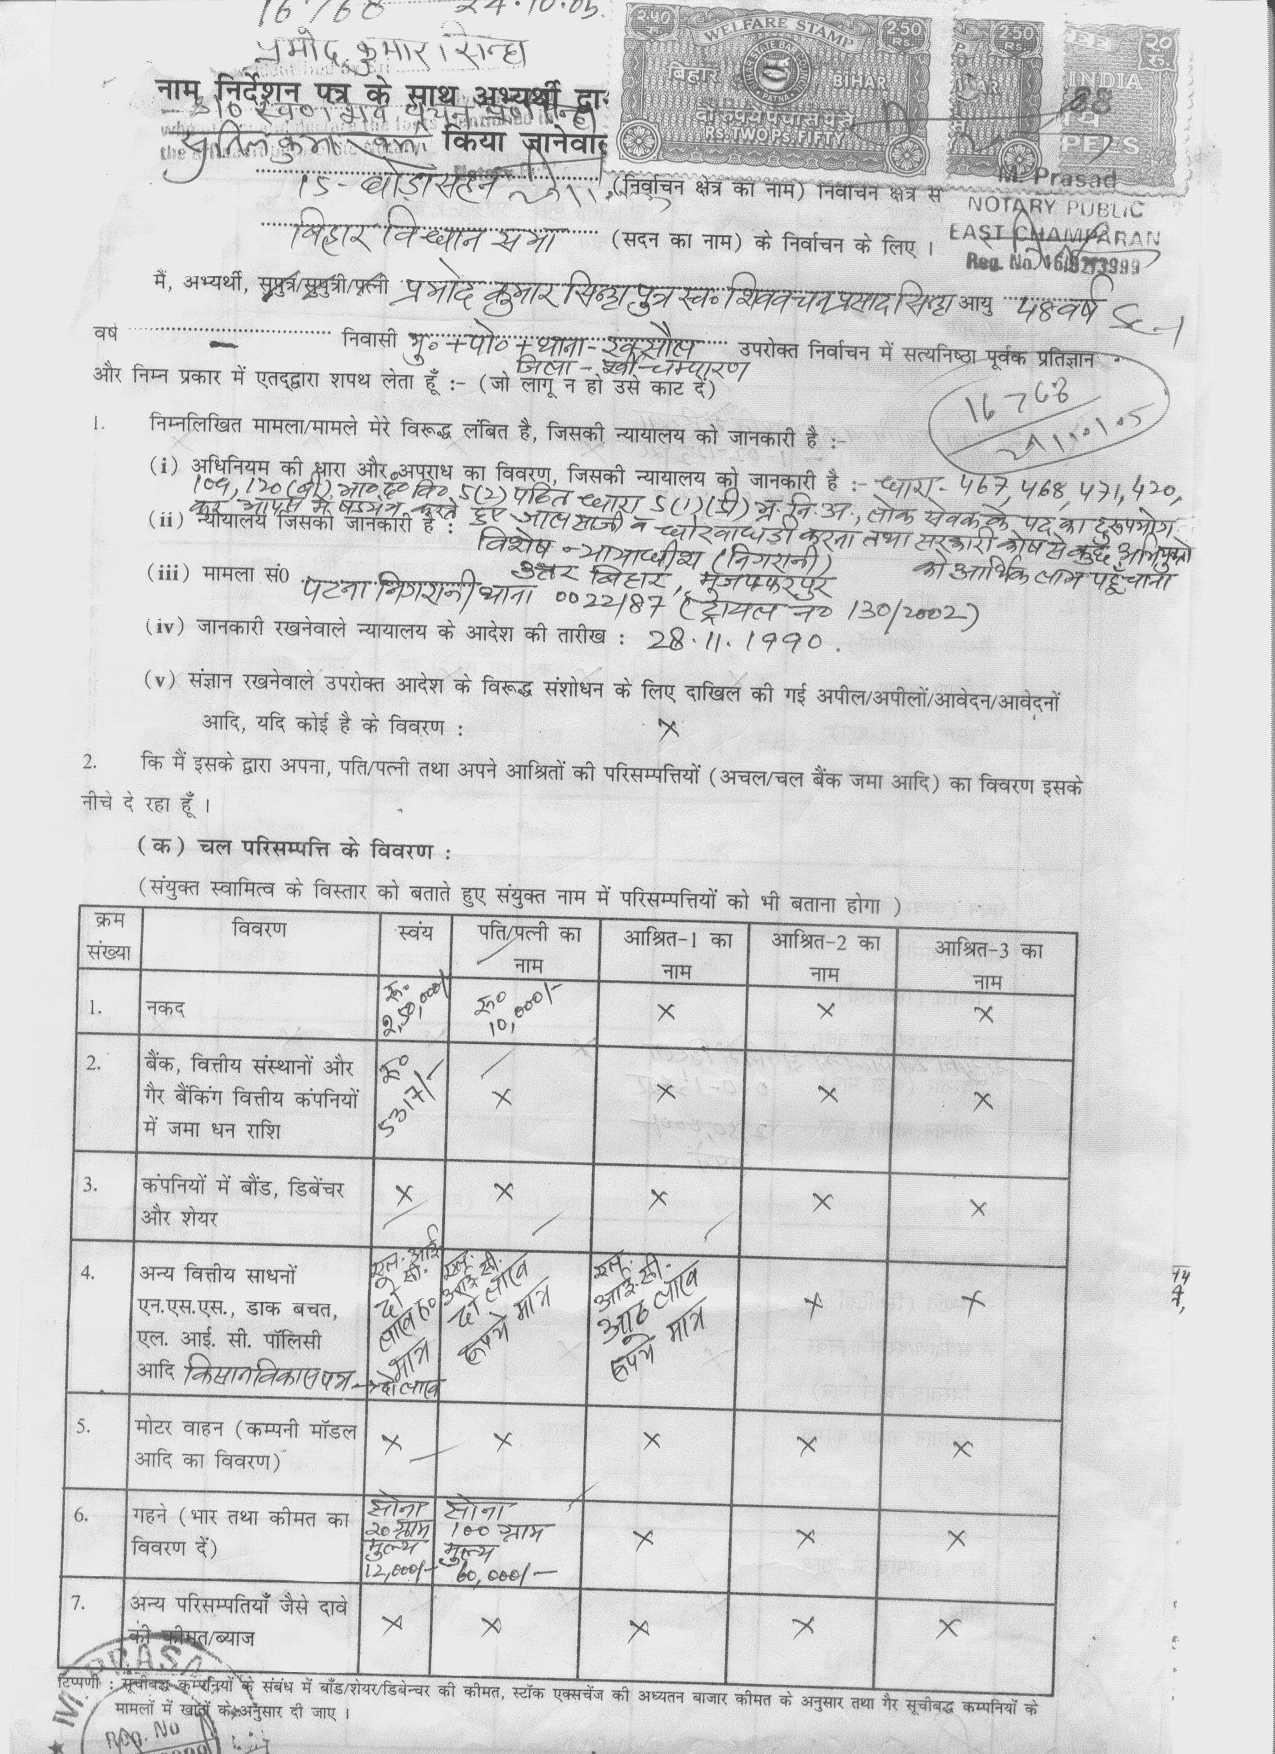 16768 24.10.05.
प्रमोद कुमार सिन्हा
नाम निर्देशन पत्र के साथ अभ्यर्थी द्वा
किया जानेवाल
२.५० WELFARE STAMP 2.50 RS
बिहार BIHAR
दो रुपये पचास पैसे
RS. TWO Ps. FIFTY
2.50 RS
INDIA
२० रु.
15-घोड़ासहन (निर्वाचन क्षेत्र का नाम) निर्वाचन क्षेत्र स
M. Prasad
NOTARY PUBLIC
EAST CHAMPARAN
बिहार विधान सभा (सदन का नाम) के निर्वाचन के लिए ।
Reg. No.
मैं, अभ्यर्थी, सुपुत्र/सुपुत्री/पत्नी प्रमोद कुमार सिन्हा पुत्र स्व० शिववचन प्रसाद सिन्हा आयु 48 वर्ष
वर्ष निवासी मु०+पो०+थाना-रक्सौल उपरोक्त निर्वाचन में सत्यनिष्ठा पूर्वक प्रतिज्ञान
जिला-पूर्वी-चम्पारण
और निम्न प्रकार में एतद्द्वारा शपथ लेता हूँ :- (जो लागू न हो उसे काट दें)
16768
24.10.05
1. निम्नलिखित मामला/मामले मेरे विरूद्ध लंबित है, जिसकी न्यायालय को जानकारी है :-
(i) अधिनियम की धारा और अपराध का विवरण, जिसकी न्यायालय को जानकारी है :- धारा- 467, 468, 471, 420,
109, 120 (बी), भा० द० वि० 5(2) पठित धारा 5(1)(डी) भ्र. नि. अ., लोक सेवक के पद का दुरूपयोग
कर आपस में षडयंत्र करते हुए जालसाजी व धोखाधड़ी करना तथा सरकारी कोष से कुछ अभियुक्तो
को आर्थिक लाभ पहुँचाना
(ii) न्यायालय जिसको जानकारी है : विशेष न्यायाधीश (निगरानी)
उत्तर बिहार, मुजफ्फरपुर
(iii) मामला सं0 पटना निगरानी थाना 0022/87 (ट्रायल न० 130/2002)
(iv) जानकारी रखनेवाले न्यायालय के आदेश की तारीख : 28.11.1990.
(v) संज्ञान रखनेवाले उपरोक्त आदेश के विरूद्ध संशोधन के लिए दाखिल की गई अपील/अपीलों/आवेदन/आवेदनों
आदि, यदि कोई है के विवरण : ×
2. कि मैं इसके द्वारा अपना, पति/पत्नी तथा अपने आश्रितों की परिसम्पत्तियों (अचल/चल बैंक जमा आदि) का विवरण इसके
नीचे दे रहा हूँ ।
(क) चल परिसम्पत्ति के विवरण :
(संयुक्त स्वामित्व के विस्तार को बताते हुए संयुक्त नाम में परिसम्पत्तियों को भी बताना होगा )
क्रम संख्या विवरण स्वंय पति/पत्नी का नाम आश्रित-1 का नाम आश्रित-2 का नाम आश्रित-3 का नाम
1. नकद रू० 2,50,000/- रू० 10,000/- × × ×
2. बैंक, वित्तीय संस्थानों और रू० 5317/- × × × ×
गैर बैंकिंग वित्तीय कंपनियों
में जमा धन राशि
3. कंपनियों में बौंड, डिबेंचर × × × × ×
और शेयर
4. अन्य वित्तीय साधनों एल. आई. सी. दो लाख रू० मात्र एल. आई. सी. दो लाख रूपये मात्र एल. आई. सी. आठ लाख रूपये मात्र × ×
एन.एस.एस., डाक बचत,
एल. आई. सी. पॉलिसी
आदि किसान विकास पत्र → दो लाख
5. मोटर वाहन (कम्पनी मॉडल × × × × ×
आदि का विवरण)
6. गहने (भार तथा कीमत का सोना 20 ग्राम मुल्य 12,000/- सोना 100 ग्राम मुल्य 60,000/- × × ×
विवरण दें)
7. अन्य परिसम्पतियाँ जैसे दावे × × × × ×
की कीमत/ब्याज
टिप्पणी : सूचीबद्ध कम्पनियों के संबंध में बॉंड/शेयर/डिबेन्चर की कीमत, स्टॉक एक्सचेंज की अध्यतन बाजार कीमत के अनुसार तथा गैर सूचीबद्ध कम्पनियों के
मामलों में खातों के अनुसार दी जाए ।
M. PRASA
Reg. No